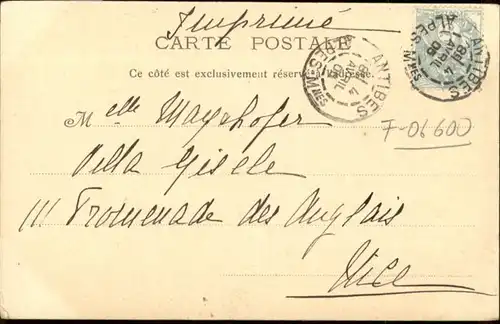 Imprimé
CARTE POSTALE
Ce côté est exclusivement réservé à l'adresse.
ANTIBES
ALPES Mmes
8H 4
AVRIL
05
ANTIBES
ALPES Mmes
8H 4
AVRIL
05
F-06600
Melle Mayrhofer
Villa Gisele
111 Promenade des Anglais
Nice